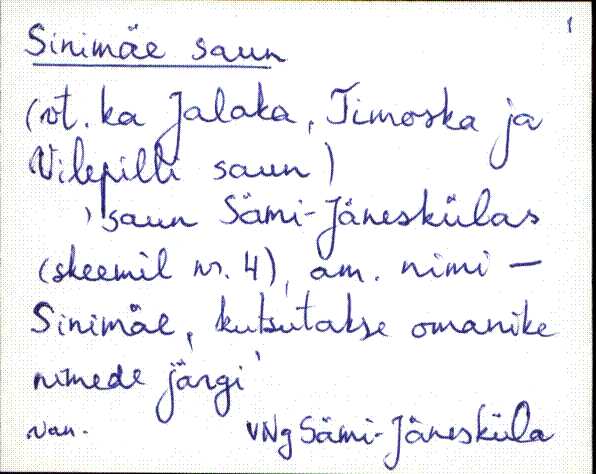 1
Sinimäe saun
(vt. ka Jalaka, Timoska ja
Vilepilli saun)
'saun Sämi-Jäneskülas
(skeemil nr. 4), am. nimi –
Sinimäe, kutsutakse omanike
nimede järgi'
van. VNg Sämi-Jänesküla